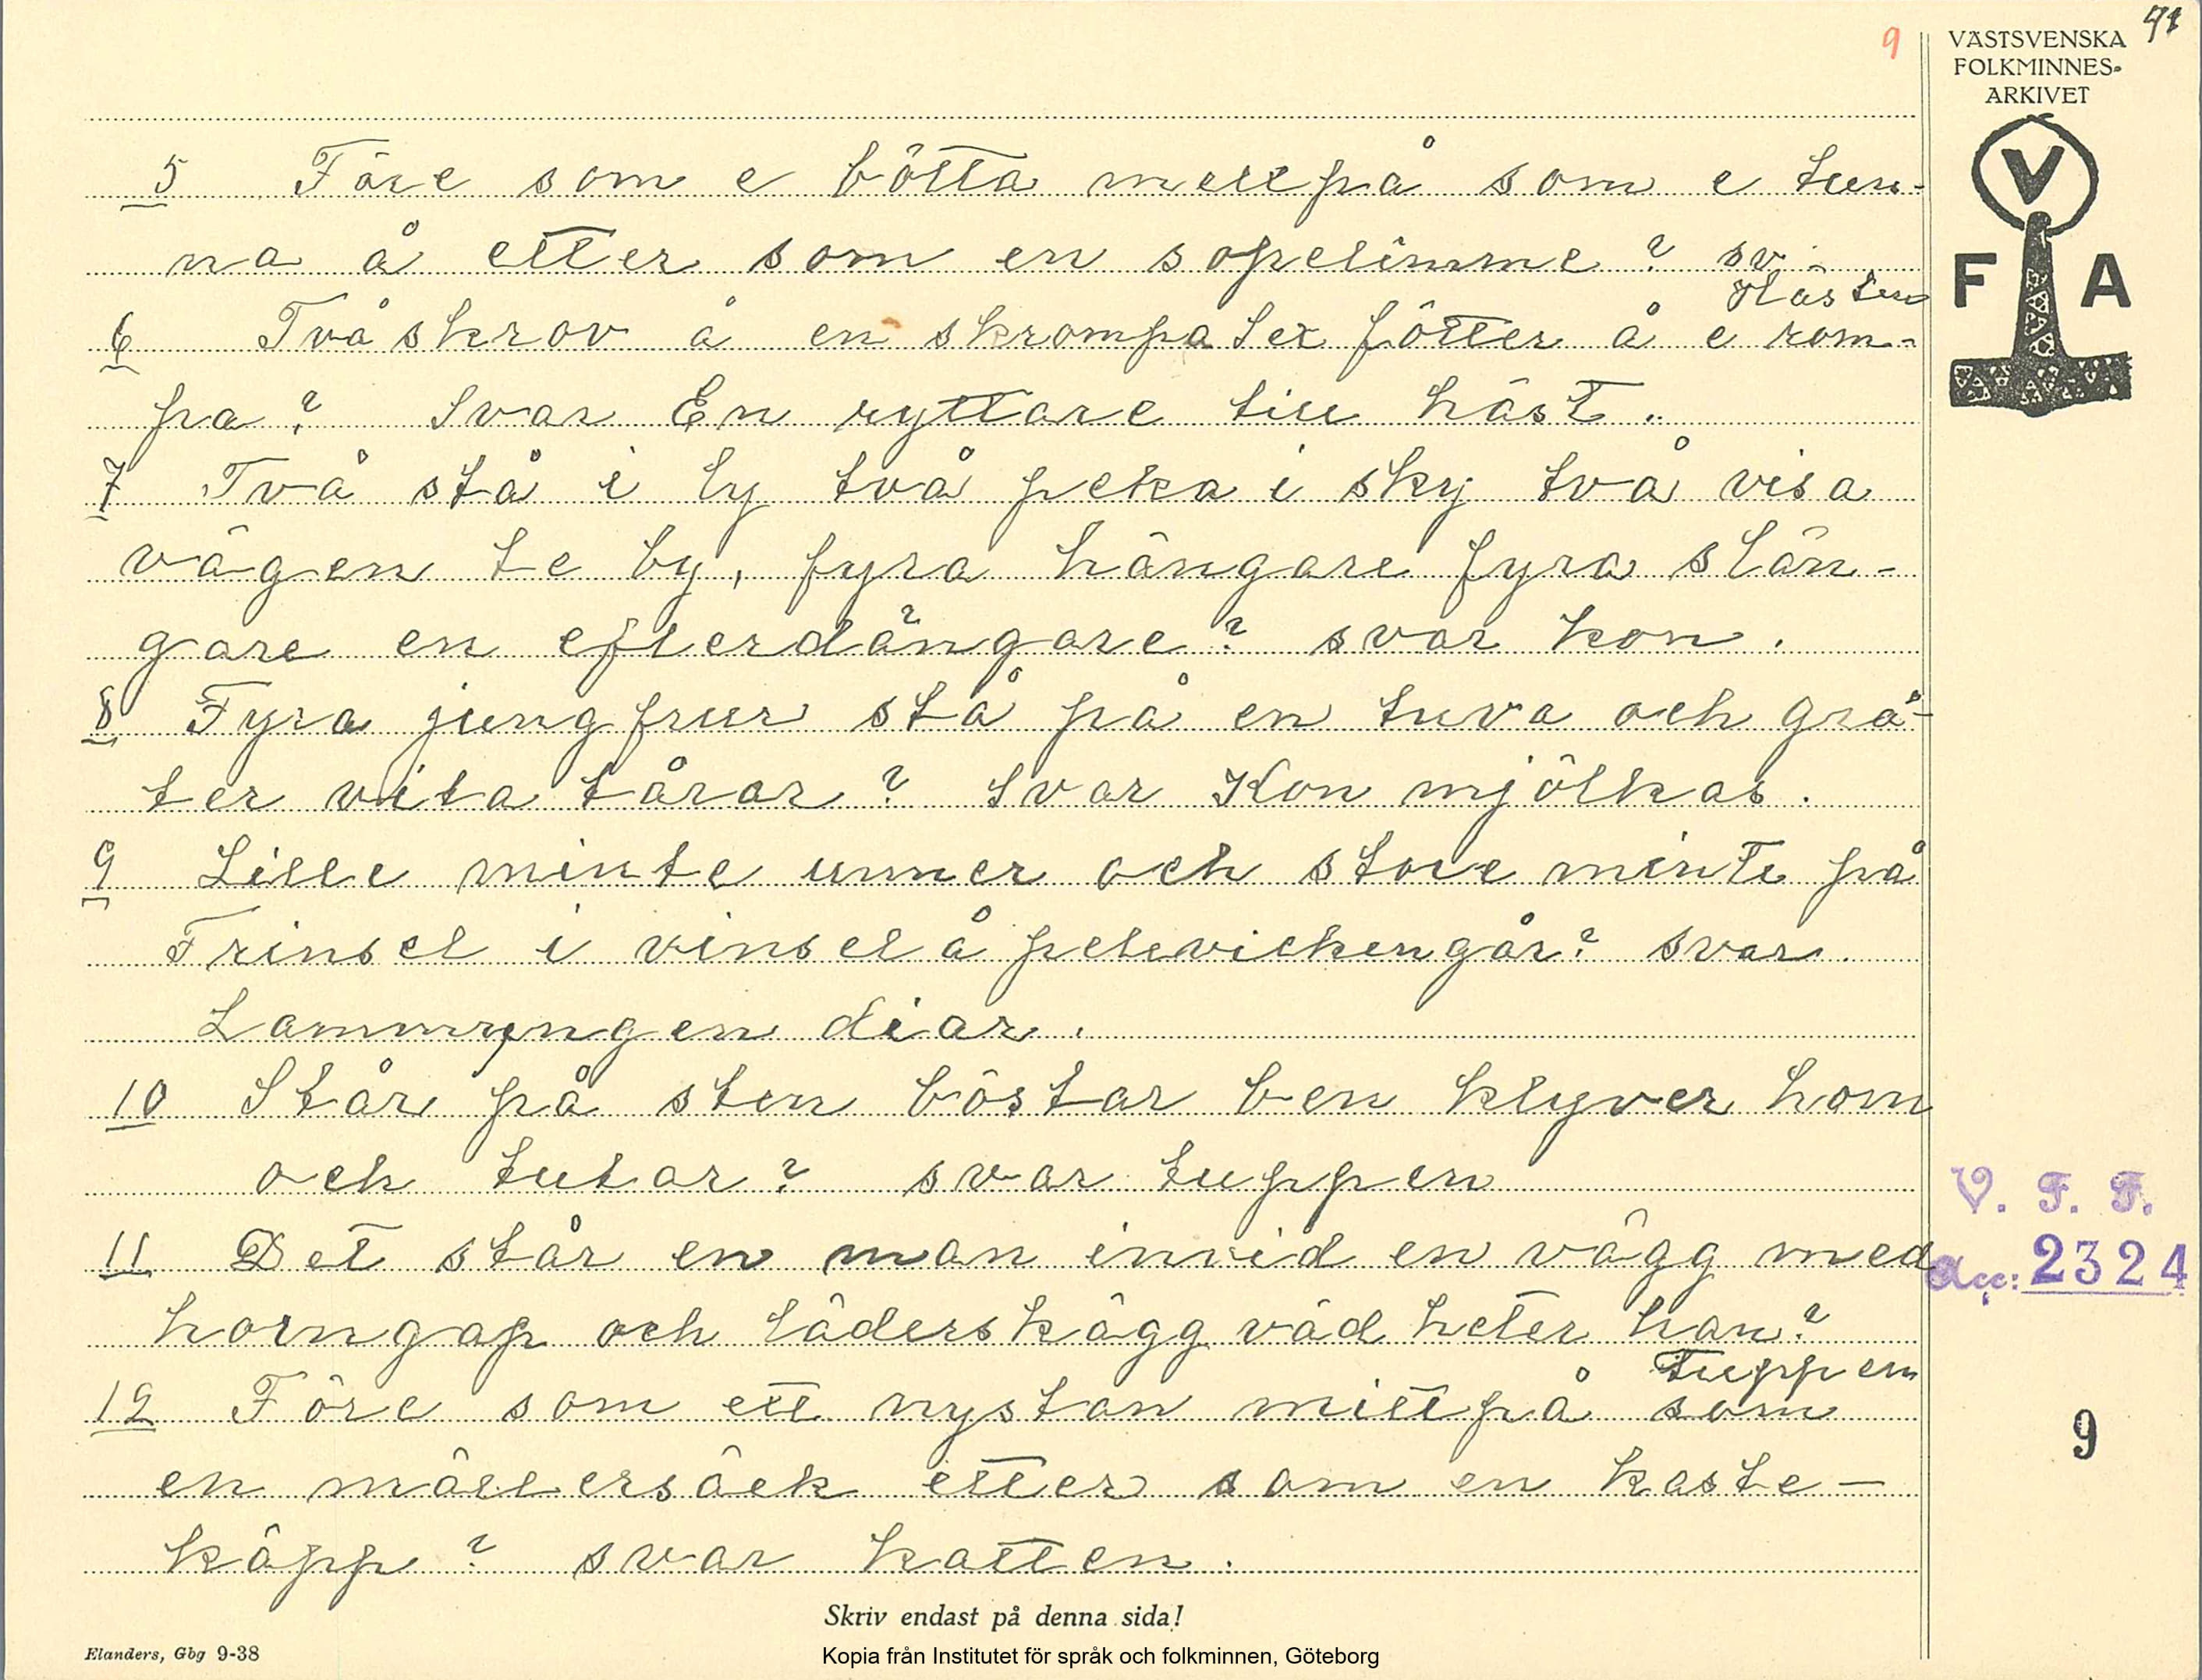 9
VÄSTSVENSKA
FOLKMINNES-
ARKIVET
V
F A
5 Före som e bötta mettpå som e tun-
na å etter som en sopelimme? sv.
Hästen
6 Två skrov å en skrompa sex fötter å e rom-
pa? Svar En ryttare till häst.
7 Två stå i ly två peka i sky två visa
vägen te by, fyra hängare fyra slän-
gare en efterdängare? svar kon.
8 Fyra jungfrur stå på en tuva och grå-
ter vita tårar? Svar Kon mjölkas.
9 Lille minte unner och store minte på
Frinsel i vinsel å pelevickengår? svar
Lammungen diar.
10 Står på sten böstar ben klyver horn
och tutar? svar tuppen
11 Det står en man invid en vägg med
horngap och läderskägg väd heter han?
Tuppen
12 Före som ett nystan mittpå som
en mällersäck etter som en kaste-
käpp? svar katten.
V. F. F.
Acc: 2324
9
Skriv endast på denna sida!
Elanders, Gbg 9-38
Kopia från Institutet för språk och folkminnen, Göteborg